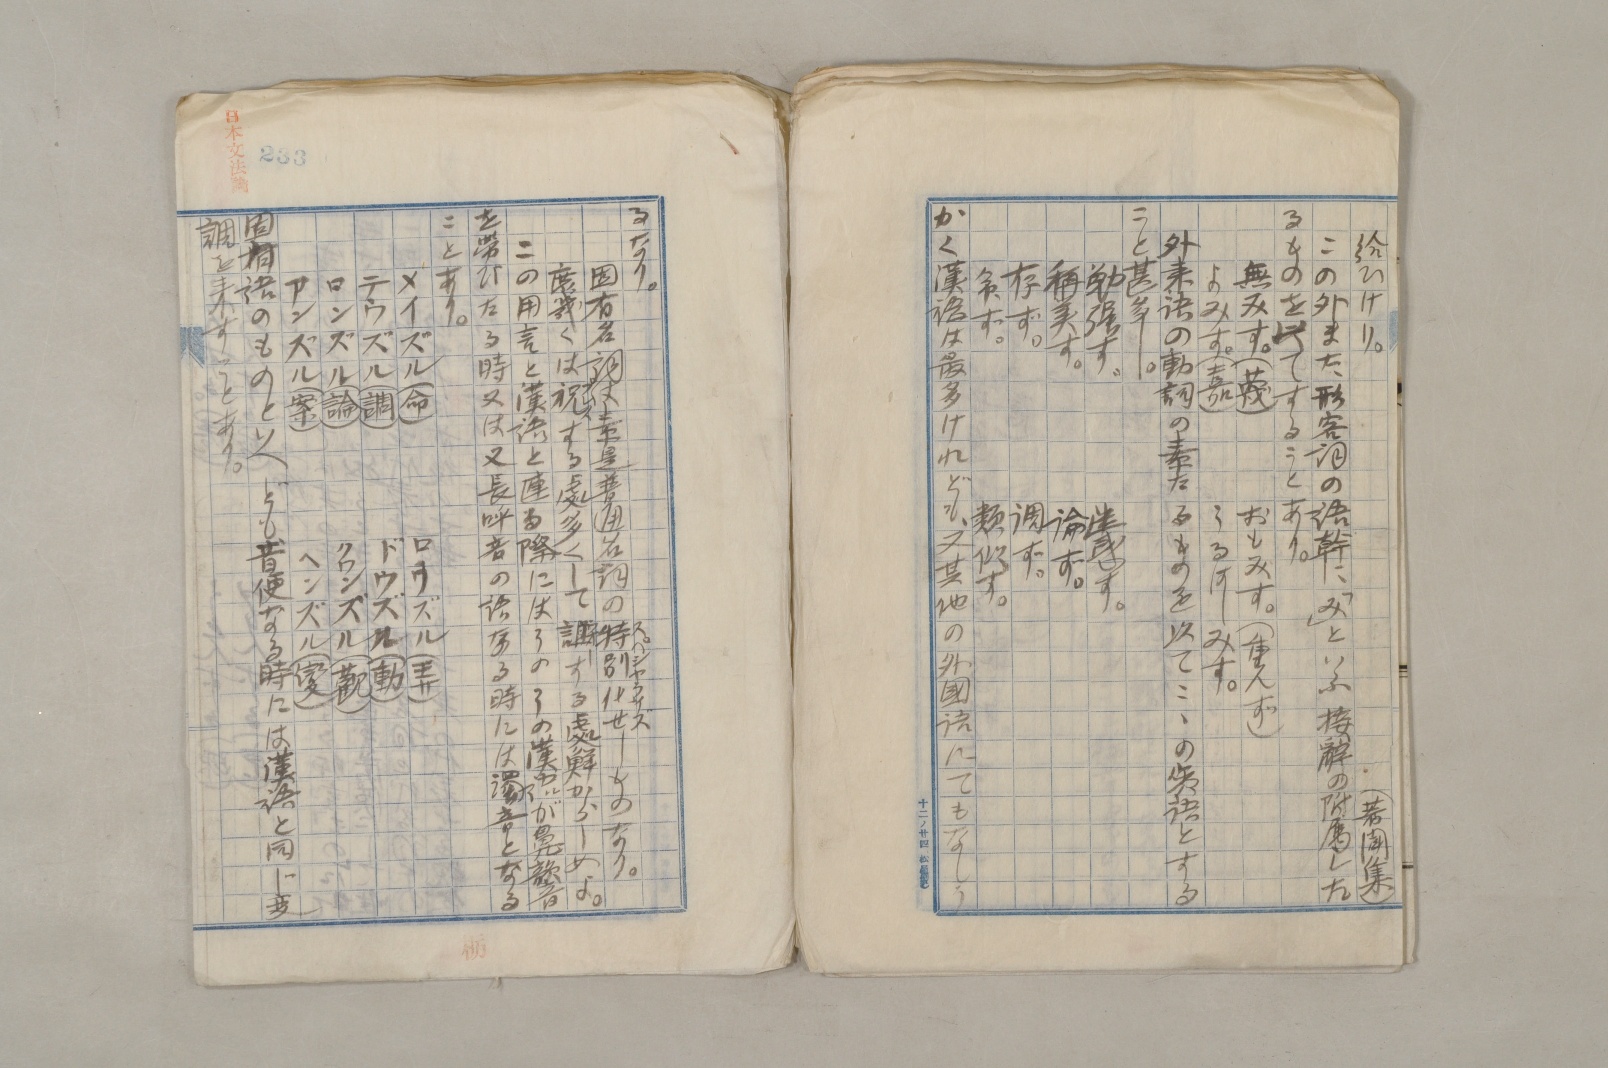 給ひけり。
（著聞集）
この外また形容詞の語幹に「み」といふ接辞の附属した
るものを以てすることあり。
無みす。（蔑）
おもみす。（重んず）
よみす。（嘉）
うるけしみす。
外来語の動詞の素たるものを以てこゝの賓語とする
こと甚多し。
勉強す。
稱美す。
論ず。
存ず。
調ず。
念ず。
類似す。
かく漢語は最多けれども、又其他の外國語にてもなしう
十二ノ廿四
るなり。
固有名詞は素是普通名詞の特別化せしものなり。
庶幾くは祝する處多くして誣する處鮮からしめよ。
この用言と漢語と連る際にはその漢字が鼻韻音
を帯びたる時又は又長呼音の語なる時には濁音となる
ことあり。
メイズル（命）
ロウズル（弄）
テウズル（調）
ドウズル（動）
ロンズル（論）
クワンズル（觀）
アンズル（案）
ヘンズル（變）
固有語のものといへども音便なる時には漢語と同じ歩
調を来すことあり。
233
日本文法論